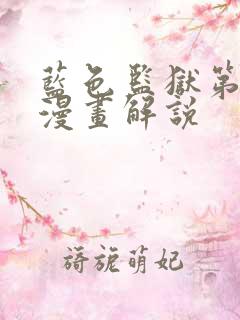 藍色監獄第
漫畫解說
旖旎萌妃